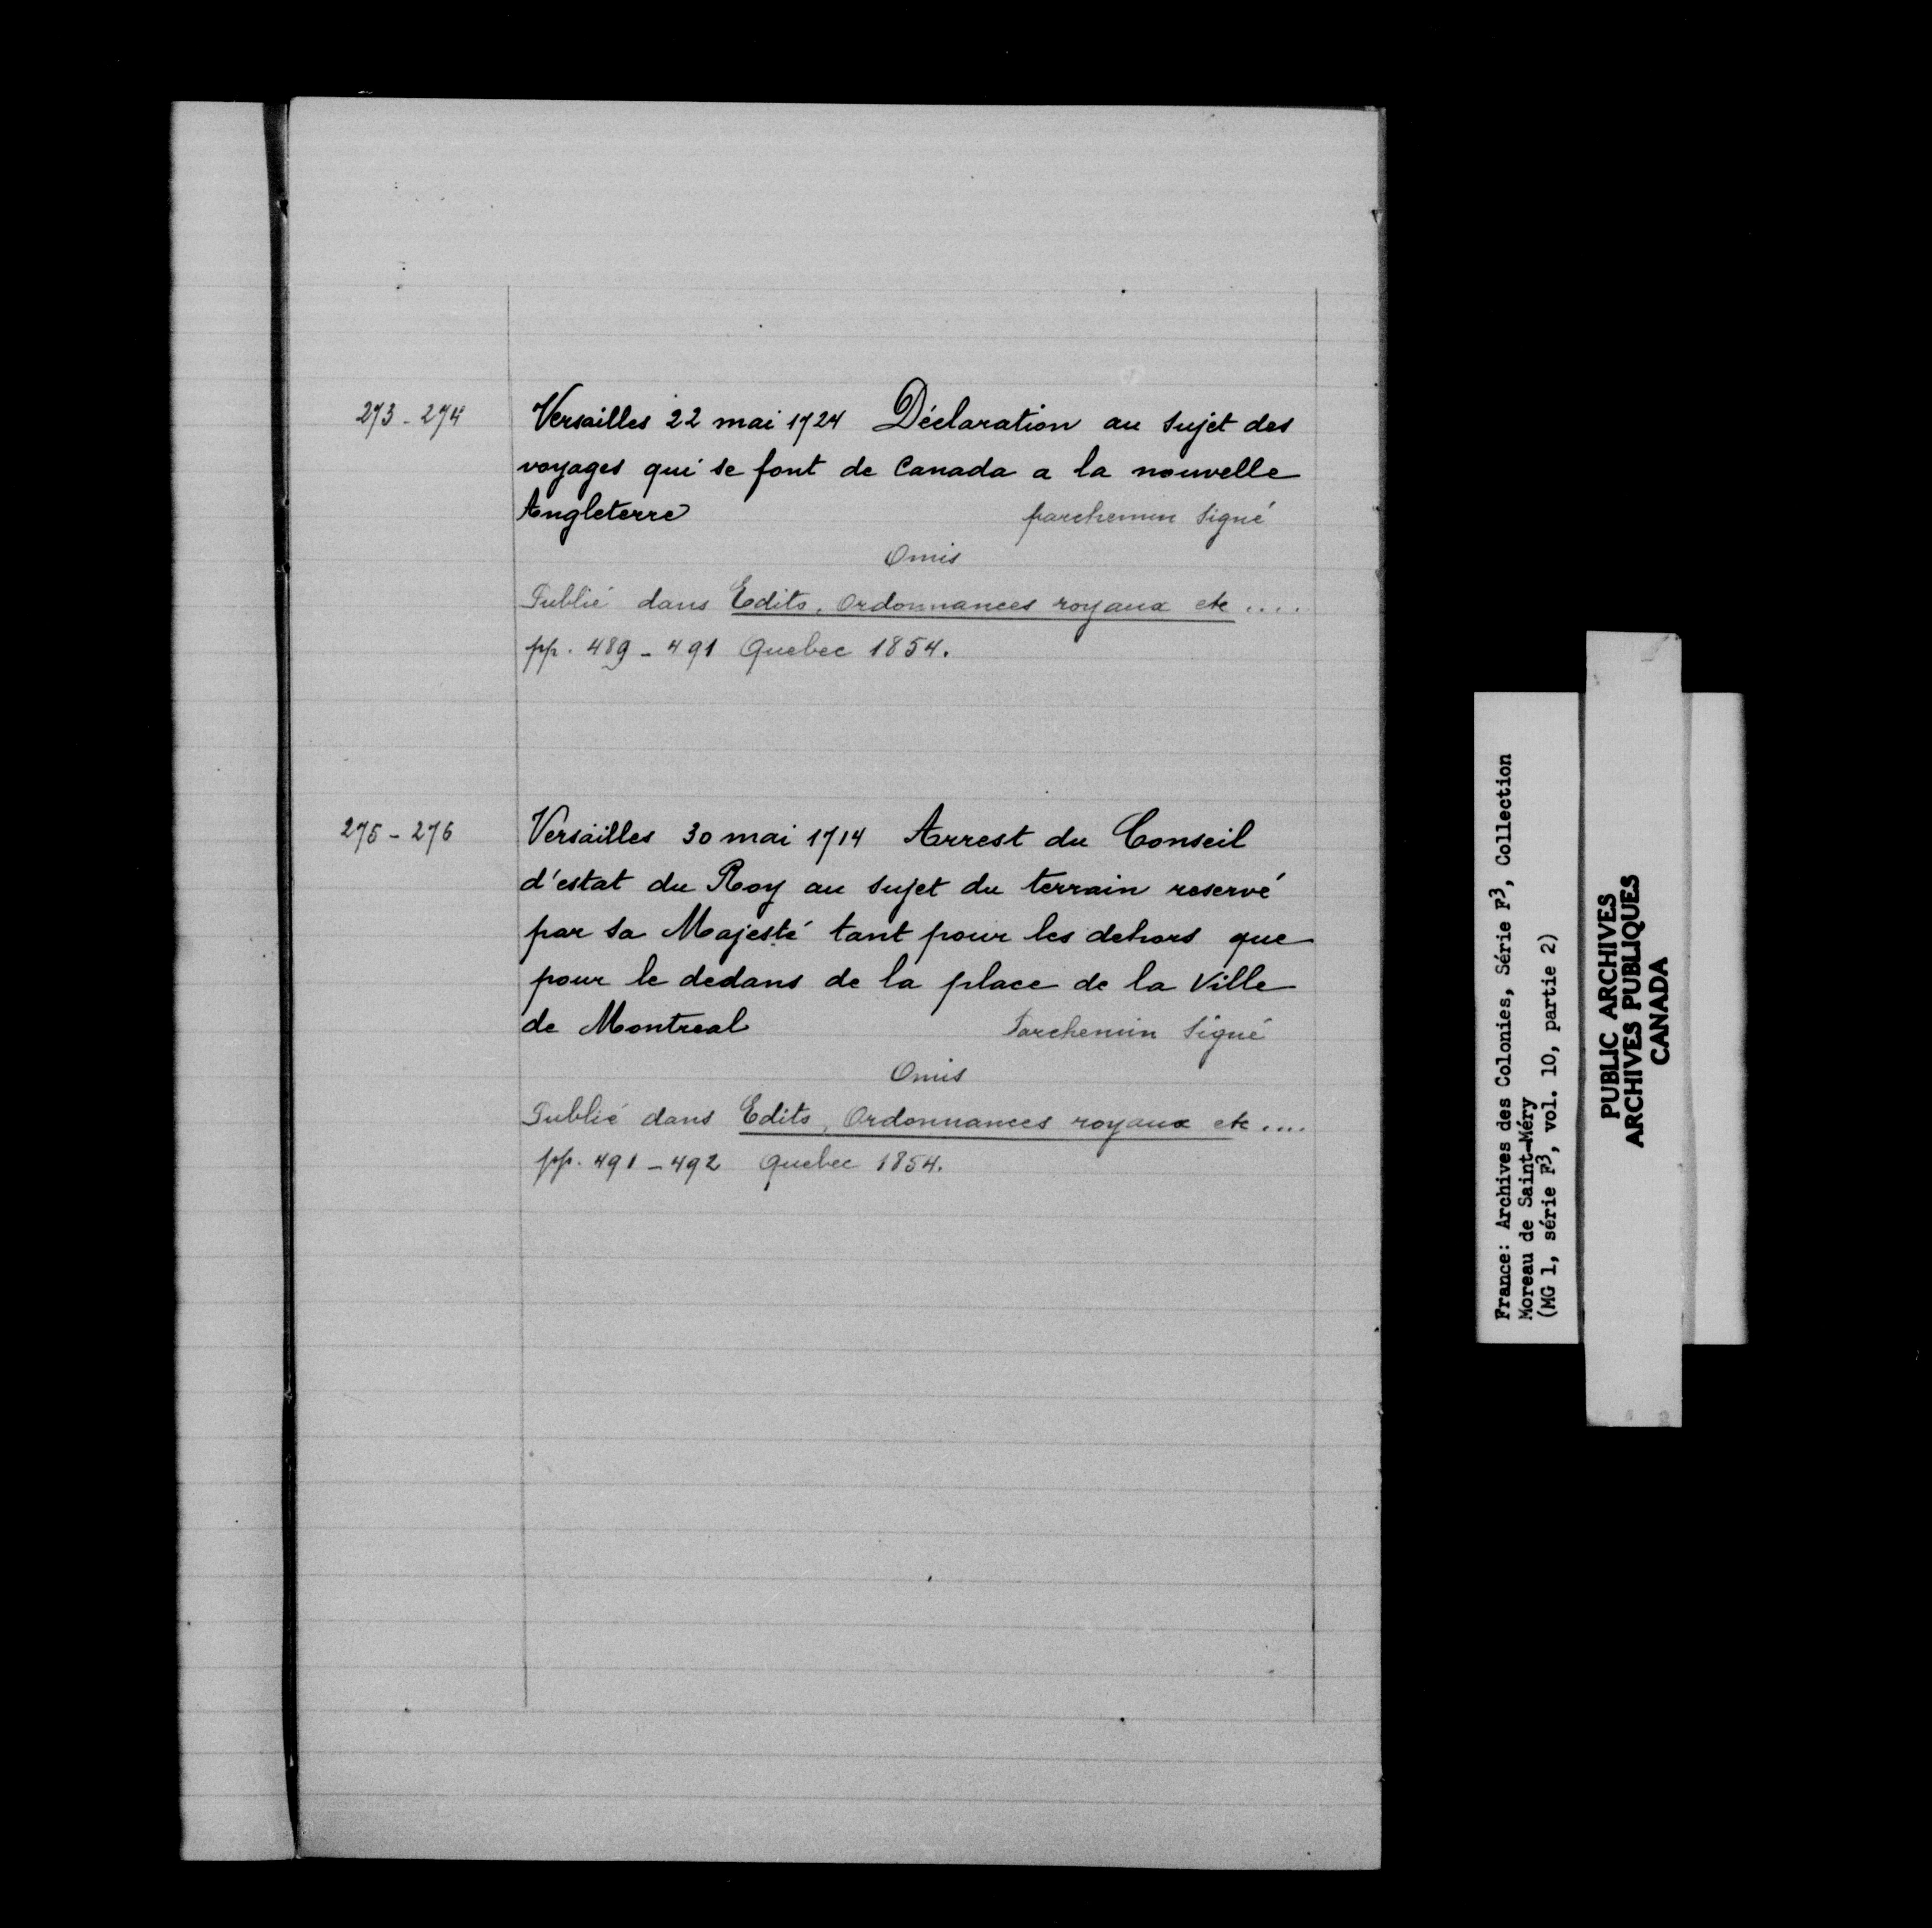 273-274
Versailles 22 mai 1724 Déclaration au sujet des
voyages qui se font de Canada a la nouvelle
Angleterre parchemin Signé
Omis
Publié dans Edits, Ordonnances royaux etc ....
pp. 489-491 Quebec 1854.
275-276
Versailles 30 mai 1714 Arrest du Conseil
d'estat du Roy au sujet du terrain reservé
par sa Majesté tant pour les dehors que
pour le dedans de la place de la Ville
de Montreal Parchemin Signé
Omis
Publié dans Edits, Ordonnances royaux etc ....
pp. 491-492 Quebec 1854.
France: Archives des Colonies, Série F3, Collection
Moreau de Saint-Méry
(MG 1, série F3, vol. 10, partie 2)
PUBLIC ARCHIVES
ARCHIVES PUBLIQUES
CANADA